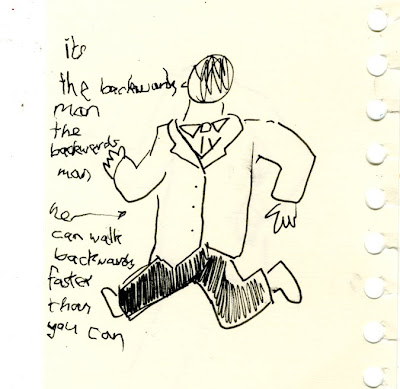 its
the backwards
man
the
backwards
man
he
can walk
backwards
faster
than
you can